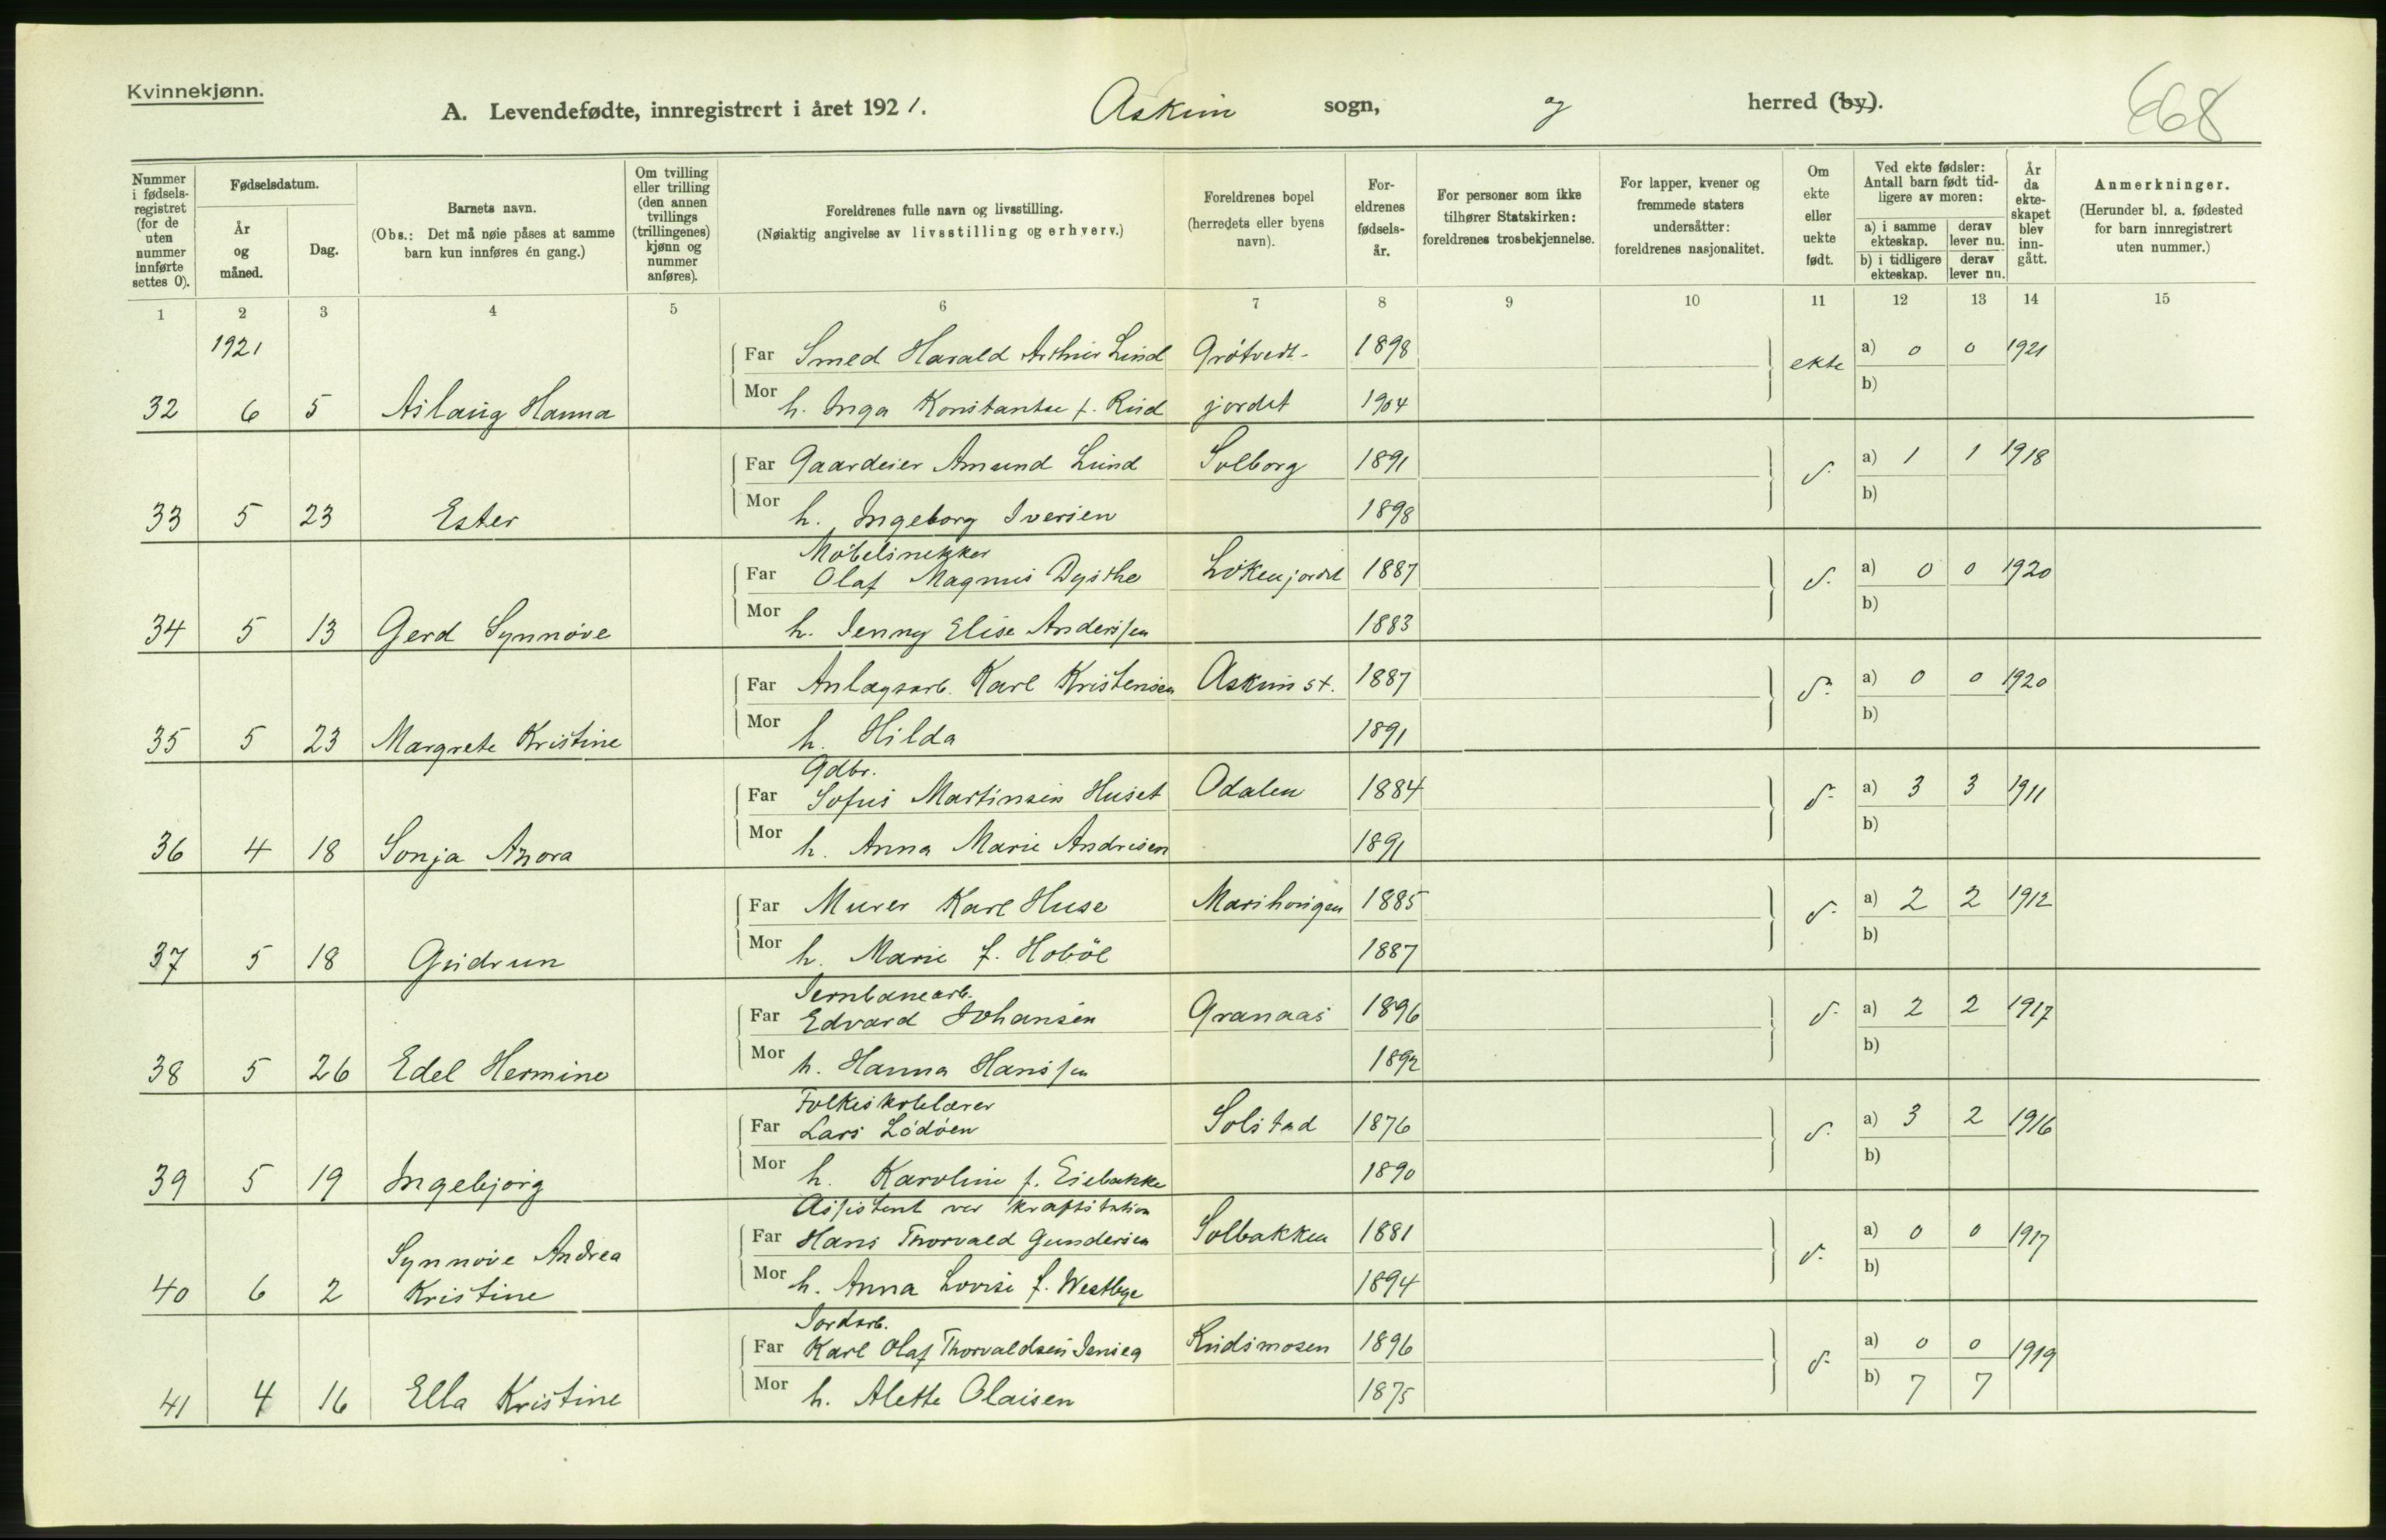 Kvinnekjønn.
A. Levendefødte, innregistrert i året 1921. Askim sogn, og herred (by).
668
Nummer i fødselsregistret (for de uten nummer innførte settes 0).
Fødselsdatum.
År og måned.
Dag.
Barnets navn.
(Obs.: Det må nøie påses at samme barn kun innføres én gang.)
Om tvilling eller trilling (den annen tvillings (trillingenes) kjønn og nummer anføres).
Foreldrenes fulle navn og livsstilling.
(Nøiaktig angivelse av livsstilling og erhverv.)
Foreldrenes bopel (herredets eller byens navn).
Foreldrenes fødselsår.
For personer som ikke tilhører Statskirken: foreldrenes trosbekjennelse.
For lapper, kvener og fremmede staters undersåtter: foreldrenes nasjonalitet.
Om ekte eller uekte født.
Ved ekte fødsler: Antall barn født tidligere av moren:
a) i samme ekteskap. derav lever nu.
b) i tidligere ekteskap. derav lever nu.
År da ekteskapet blev inngått.
Anmerkninger.
(Herunder bl. a. fødested for barn innregistrert uten nummer.)
1 2 3 4 5 6 7 8 9 10 11 12 13 14 15
1921
Far Smed Harald Arthur Lund Grötvedt- 1898 ekte a) 0 0 1921
32 6 5 Aslaug Hanna Mor h. Inga Konstantse f. Rud jordet 1904 b)
Far Gaardeier Amund Lund Solborg 1891 d. a) 1 1 1918
33 5 23 Ester Mor h. Ingeborg Iversen 1898 b)
Möbelsnekker
Far Olaf Magnus Dysthe Lökenjordet 1887 d. a) 0 0 1920
34 5 13 Gerd Synnöve Mor h. Jenny Elise Anderssen 1883 b)
Far Anlægsarb. Karl Kristensen Askim st. 1887 d. a) 0 0 1920
35 5 23 Margrete Kristine Mor h. Hilda 1891 b)
Gdbr.
Far Sofus Martinsen Huset Odalen 1884 d. a) 3 3 1911
36 4 18 Sonja Azora Mor h. Anna Marie Andresen 1891 b)
Far Murer Karl Huse Marihaugen 1885 d. a) 2 2 1912
37 5 18 Gudrun Mor h. Marie f. Hoböl 1887 b)
Jernbanearb.
Far Edvard Johansen Granaas 1896 d. a) 2 2 1917
38 5 26 Edel Hermine Mor h. Hanna Hanssen 1892 b)
Folkeskolelærer
Far Lars Lödöen Solstad 1876 d. a) 3 2 1916
39 5 19 Ingebjörg Mor h. Karoline f. Eiebakke 1890 b)
Assistent ved kraftstation
Far Hans Thorvald Gundersen Solbakken 1881 d. a) 0 0 1917
Synnöve Andrea
40 6 2 Kristine Mor h. Anna Lovise f. Westbye 1894 b)
Jordarb.
Far Karl Olaf Thorvaldsen Jenseg Rudsmosen 1896 d. a) 0 0 1919
41 4 16 Ella Kristine Mor h. Alette Olaisen 1875 b) 7 7